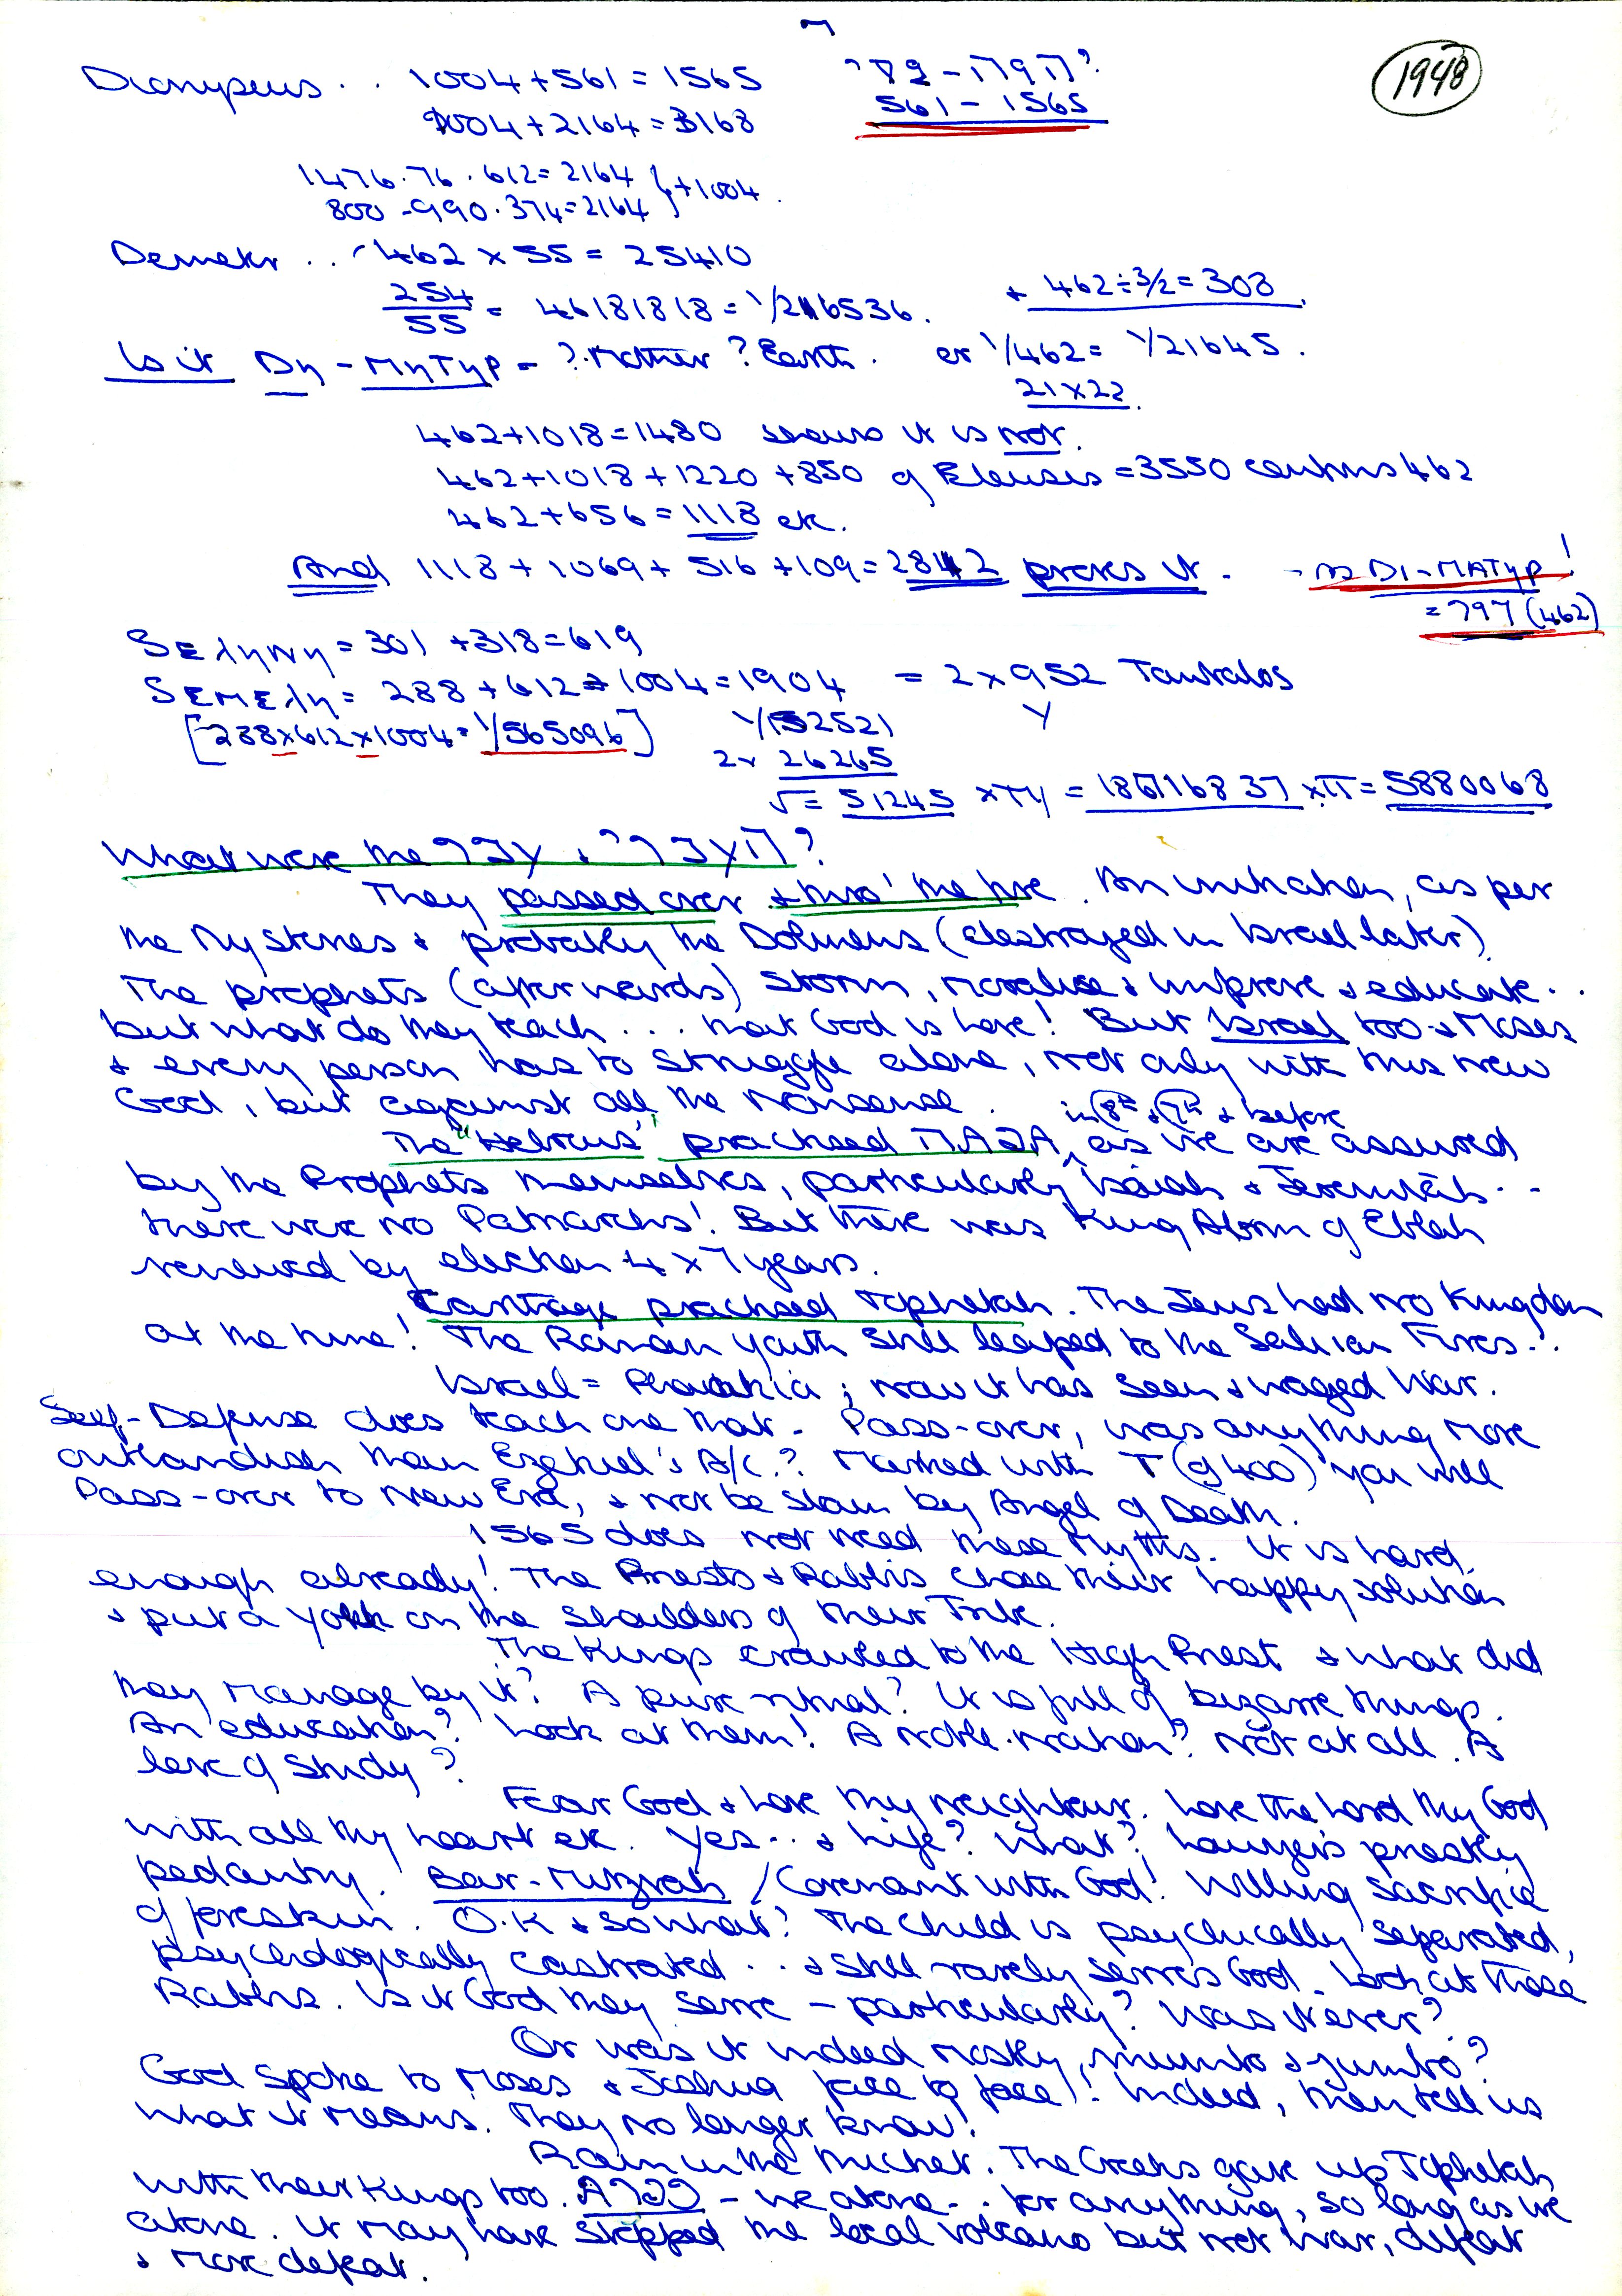 7
1948
Dionyseus . . 1004 + 561 = 1565
561 - 1565
1004 + 2164 = 3168
1476 . 76 . 612 = 2164 } + 1004 .
800 - 990 . 374 = 2164
Demeter . . 462 × 55 = 25410
+ 462 ÷ 3/2 = 308
254/55 = 46181818 = 1/216536 .
Is it Dη - MηTηp = ? Mother ? Earth . or 1/462 = 1/21645 .
21 × 22 .
462 + 1018 = 1480 shows it is not .
462 + 1018 + 1220 + 850 of Eleusis = 3550 contains 462
462 + 656 = 1118 etc .
And 1118 + 1069 + 516 + 109 = 2812 proves it . - as DI - MATηp !
= 797 (462)
SEληνη = 301 + 318 = 619
SEMEλη = 288 + 612 + 1004 = 1904 = 2 × 952 Tantalos
[ 288 × 612 × 1004 = 1/565096 ] 1/52521
2 × 26265
√ = 51245 × = 186116837 × π = 5880068
What were the
They passed over & thro' the fire . An initiation, as per
the Mysteries & probably the Dolmens (destroyed in Israel later) .
The prophets (afterwards) storm, moralise & improve & educate . .
but what do they teach . . . that God is love ! But Israel too & Moses
& every person has to struggle alone, not only with this new
God, but against all the nonsense .
in 8th & 7th & before
The "Hebrews" practised as we are assured
by the Prophets themselves, particularly Isaiah & Jeremiah . .
there were no Patriarchs ! But there was King Abrm of Eblah
renewed by election 4 × 7 years .
Carthage practised Tophetah . The Jews had no Kingdom
at the time ! The Roman youth still leaped to the Salian Fires . .
Israel = ; now it has seen & waged War .
Self-Defense does teach one that . Pass-over, was anything more
outlandish than Ezekiel's A/c . ? Marked with T (of 400) you will
Pass-over to New Era, & not be slain by Angel of Death .
1565 does not need these Myths . It is hard
enough already ! The Priests & Rabbis chose their happy solution
& put a yoke on the shoulders of their Folk .
The Kings crawled to the High Priest & what did
they manage by it ? A pure ritual ? It is full of bizarre things .
An education ? Look at them ! A noble nation ? Not at all . A
love of Study ?
Fear God & Love thy neighbour . Love the Lord thy God
with all thy heart etc . Yes . . & Life ? What ? Lawyers priestly
pedantry . Bar-Mitzvah / Covenant with God ! Willing sacrifice
of foreskin . O.K & so what ? The child is psychically separated,
psychologically castrated . . . & still rarely serves God . Look at those
Rabbis . Is it God they serve - particularly ? Was it ever ?
Or was it indeed mostly, mumbo & jumbo ?
God spoke to Moses & Joshua face to face ! ! Indeed, then tell us
what it means . They no longer know !
Ram in the thicket . The Greeks gave up Tophetah
with their Kings too . - we atone . . for anything, so long as we
atone . It may have stopped the local volcano but not War, defeat
& more defeat .